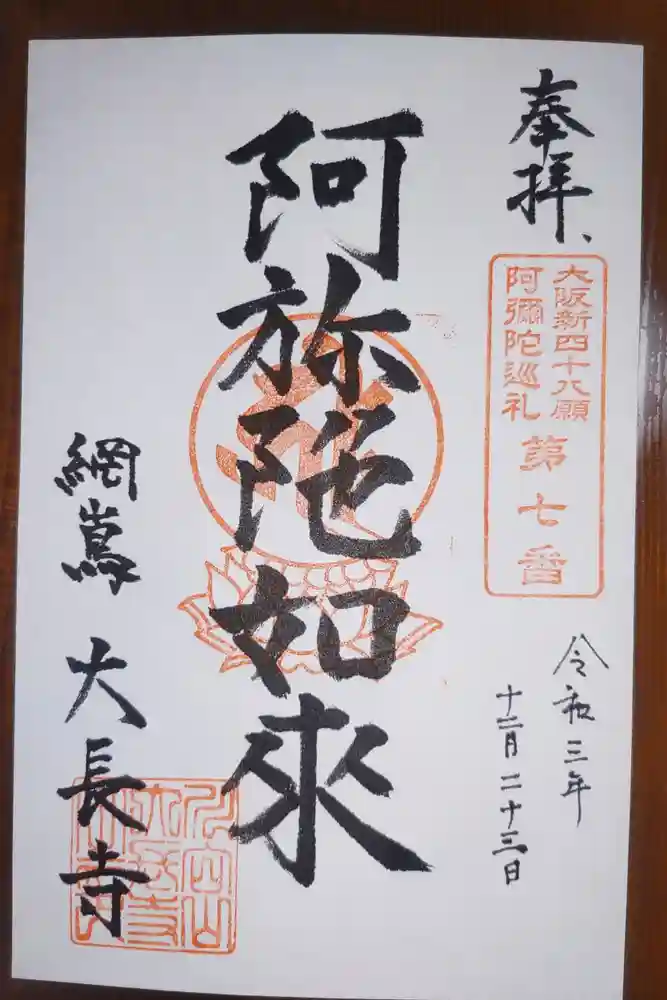 奉拝、
大阪新四十八願
阿彌陀巡礼
第七番
令和三年
十二月二十三日
阿弥陀如來
網嶌 大長寺